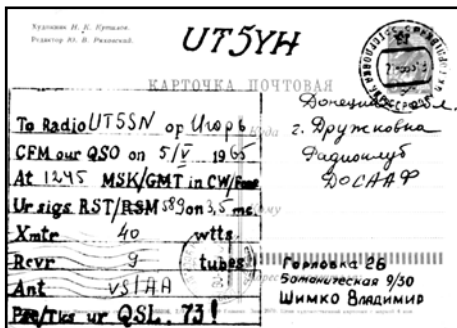 Художник Н. К.
Редактор Ю. В. Раковский.
UT5YH
КАРТОЧКА ПОЧТОВАЯ
To Radio UT5SN op Игорь
CFM our QSO on 5/V 1965
At 1245 MSK/GMT in CW/Fone
Ur sigs RST/RSM 589 on 3,5 mc.
Xmtr 40 wtts.
Rcvr 9 tubes
Ant VS1AA
PSE/Tks ur QSL. 73!
Куда
Донецкая обл.
г. Дружковка
Радиоклуб
ДОСААФ
Кому
Горловка 26
Ботаническая 9/30
Шимко Владимир